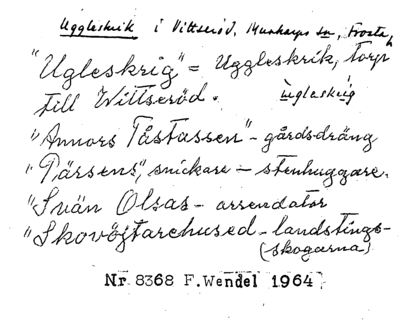 Uggleskrik i Vittseröd, Munkarps sn, Frosta h
"Ugleskrig" = Uggleskrik, torp
till Wittseröd. ùgleskrig
"Annors Tåstassen" - gårdsdräng
"Pärsens", snickare - stenhuggare.
"Svän Olsas - arrendator
"Skovögtarehused - landstings-
(skogarna)
Nr 8368 F.Wendel 1964